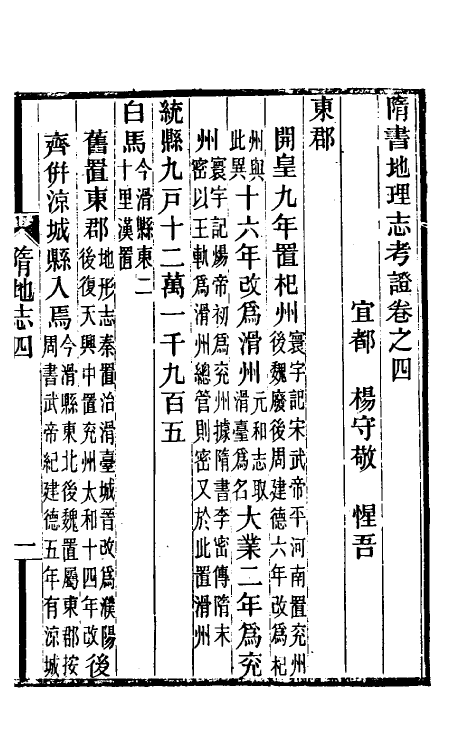 隋書地理志考證卷之四
宜都　楊守敬　惺吾
東郡
開皇九年置杞州寰宇記宋武帝平河南置兗州後魏廢後周建德六年改爲杞
州與此異十六年改爲滑州元和志取滑臺爲名大業二年爲兗
州寰宇記煬帝初爲兗州據隋書李密傳隋末密以王軌爲滑州總管則密又於此置滑州
統縣九戸十二萬一千九百五
白馬今滑縣東二十里漢置
舊置東郡地形志秦置治滑臺城晉改爲濮陽後復天興中置兗州太和十四年改後
齊併涼城縣入焉今滑縣東北後魏置屬東郡按周書武帝紀建德五年有涼城
隋地志四
一